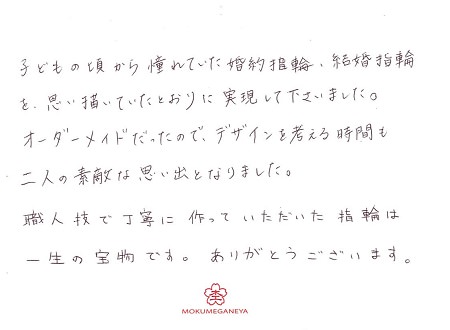 子どもの頃から憧れていた婚約指輪、結婚指輪
を、思い描いていたとおりに実現して下さいました。
オーダーメイドだったので、デザインを考える時間も
二人の素敵な思い出となりました。
職人技で丁寧に作っていただいた指輪は
一生の宝物です。ありがとうございます。
MOKUMEGANEYA